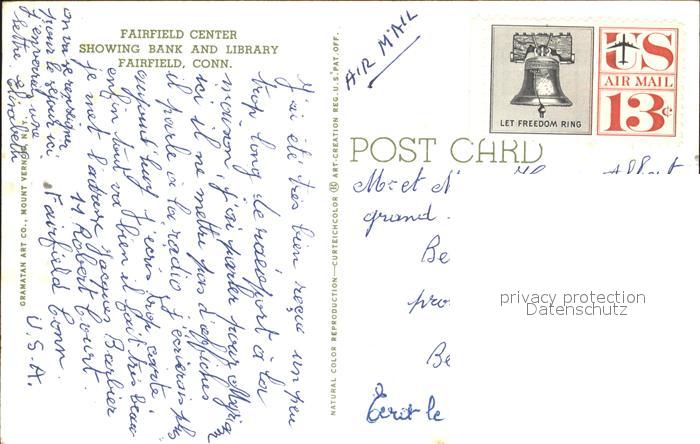 FAIRFIELD CENTER
SHOWING BANK AND LIBRARY
FAIRFIELD, CONN.
J'ai été très bien reçue un peu
trop long le à la
j'ai parler pour
ici il ne mettre pas d'affiches
il parle à la radio j'écrirais plus
j'écris trop
enfin tout va bien il fait très beau
je met l'adresse Jacques Barbier
11 Robert Court
Fairfield Conn.
U.S.A.
on va se renseigner
pour le retour ici
j'enverrai une
lettre Elisabeth
GRAMATAN ART CO., MOUNT VERNON, N.Y.
NATURAL COLOR REPRODUCTION—CURTEICHCOLOR ® ART-CREATION REG. U.S. PAT. OFF.
AIR MAIL
LET FREEDOM RING
US
AIR MAIL
13¢
POST CARD
Mr et M
grand
Be
pro
Be
Ecrit le
privacy protection
Datenschutz